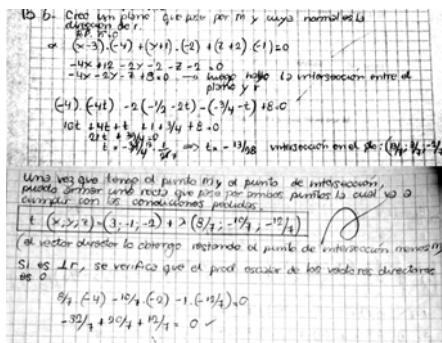 B b. Creo un plano que pase por m y cuya normal es la
dirección de r.
α (x-3).(-4) + (y+1).(-2) + (z+2).(-1)=0
-4x+12-2y-2-z-2=0
-4x-2y-z+8=0 → luego hallo la intersección entre el
plano y r
(-4).(-4t) -2(-1/2-2t)-(-3/4-t)+8=0
16t +4t+t +1+3/4+8=0
21t + 39/4=0
t=-39/4 . 1/21 => t=-13/28 intersección en el pto: (13/7;
Una vez que tengo el punto m y el punto de intersección,
puedo armar una recta que pase por ambos puntos la cual va a
cumplir con las condiciones pedidas.
t (x,y,z)=(3;-1;-2) + λ(8/7; -10/7; -12/7)
(el vector director lo obtengo restando el punto de intersección menos m)
Si es ⊥r, se verifica que el prod escalar de los vectores directores
es 0
8/7.(-4) -10/7.(-2) -1.(-12/7)=0
-32/7 + 20/7 + 12/7 = 0 ✓